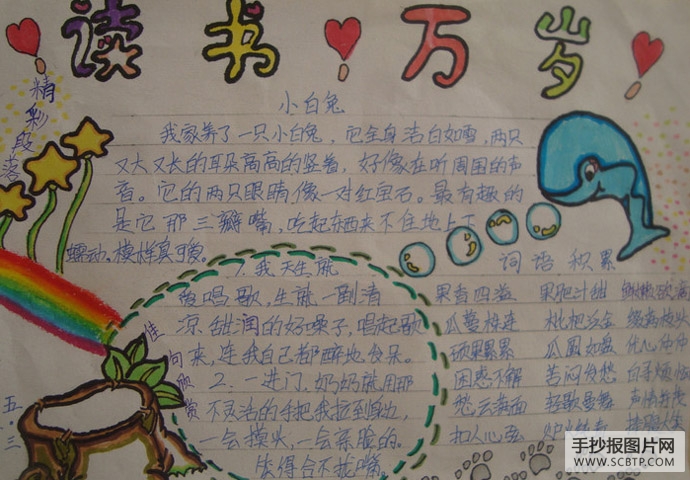 读书万岁
精彩段落
小白兔
我家养了一只小白兔,它全身洁白如雪,两只
又大又长的耳朵高高的竖着,好像在听周围的声
音。它的两只眼睛像一对红宝石。最有趣的
是它那三瓣嘴,吃起东西来不住地上下
蠕动,模样真可爱。
佳句欣赏
1.我天生就
爱唱歌,生就一副清
凉甜润的好嗓子,唱起歌
来,连我自己都醉地
2.一进门,奶奶就用那
不灵活的手把我拉到身边,
一会摸头,一会亲脸的。
乐得合不拢嘴。
词语积累
果香四溢 果肥汁甜
瓜蔓相连 枇杷
硕果累累 瓜圆如盘 忧心忡忡
困惑不解 苦闷发愁
愁云满面 轻歌曼舞 声情并茂
扣人心弦
五.三
手抄报图片网
WWW.SCBTP.COM